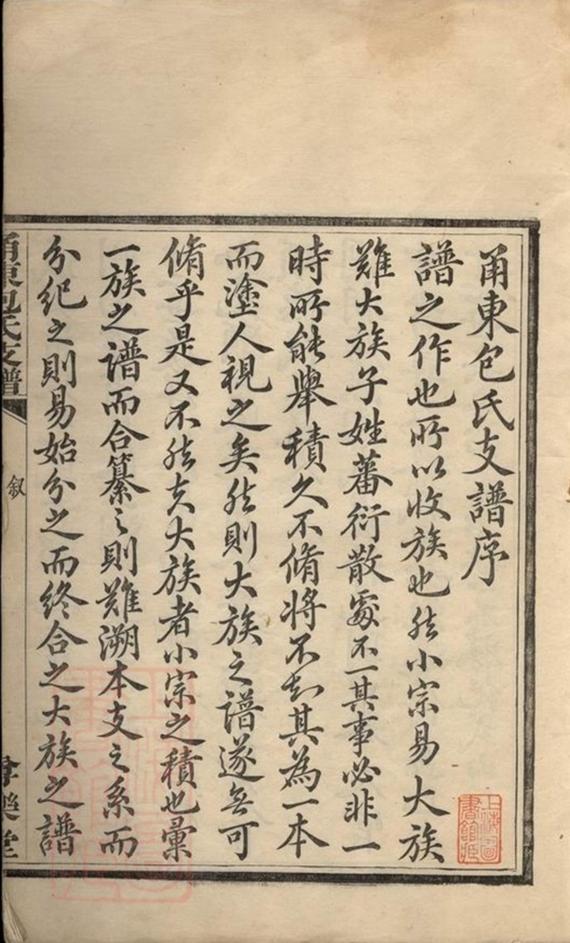 甬東包氏支譜序
譜之作也所以收族也然小宗易大族
難大族子姓蕃衍散處不一其事必非一
時所能舉積久不脩將不知其為一本
而塗人視之矣然則大族之譜遂無可
脩乎是又不然夫大族者小宗之積也彙
一族之譜而合纂之則難溯本支之系而
分紀之則易始分之而終合之大族之譜
甬東包氏支譜
叙
樂堂
上海圖書館藏